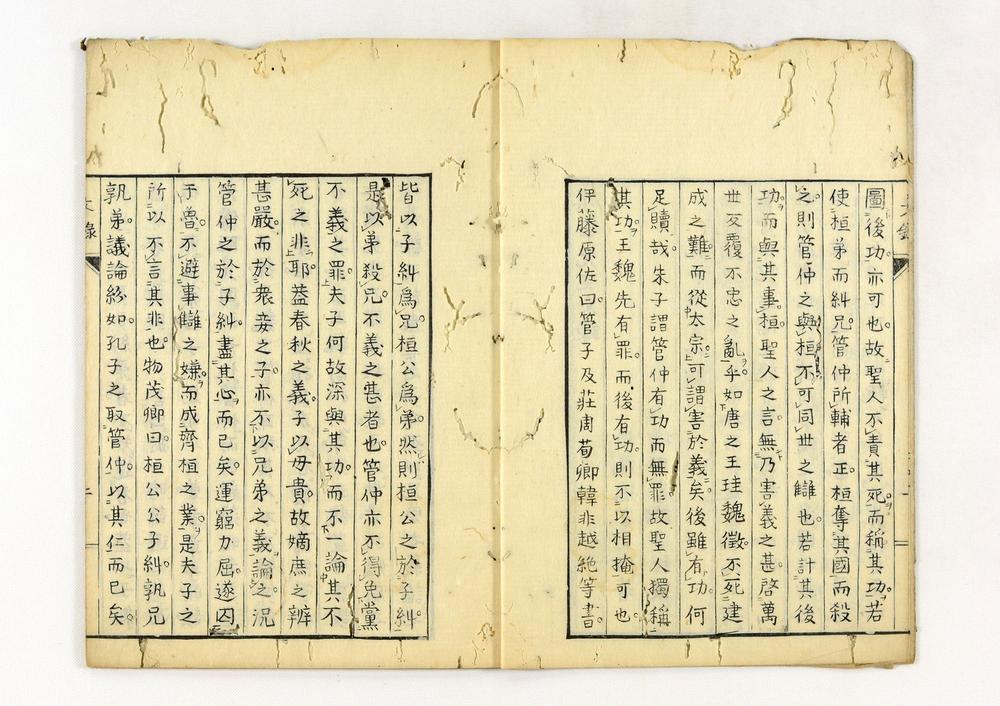 圖後功亦可也故聖人不責其死而稱其功若
使桓弟而糾兄管仲所輔者正桓奪其國而殺
之則管仲之與桓不可同世之讎也若計其後
功而與其事桓聖人之言無乃害義之甚啓萬
世反覆不忠之亂乎如唐之王珪魏徵不死建
成之難而從太宗可謂害於義矣後雖有功何
足贖哉朱子謂管仲有功而無罪故聖人獨稱
其功王魏先有罪而後有功則不以相掩可也
伊藤原佐曰管子及莊周荀卿韓非越絶等書
皆以子糾爲兄桓公爲弟然則桓公之於子糾
是以弟殺兄不義之甚者也管仲亦不得免黨
不義之罪夫子何故深與其功而不一論其不
死之非耶蓋春秋之義子以母貴故嫡庶之辨
甚嚴而於衆妾之子亦不以兄弟之義論之況
管仲之於子糾盡其心而已矣運窮力屈遂囚
于魯不避事讎之嫌而成齊桓之業是夫子之
所以不言其非也物茂卿曰桓公公子糾孰兄
孰弟議論紛如孔子之取管仲以其仁而已矣